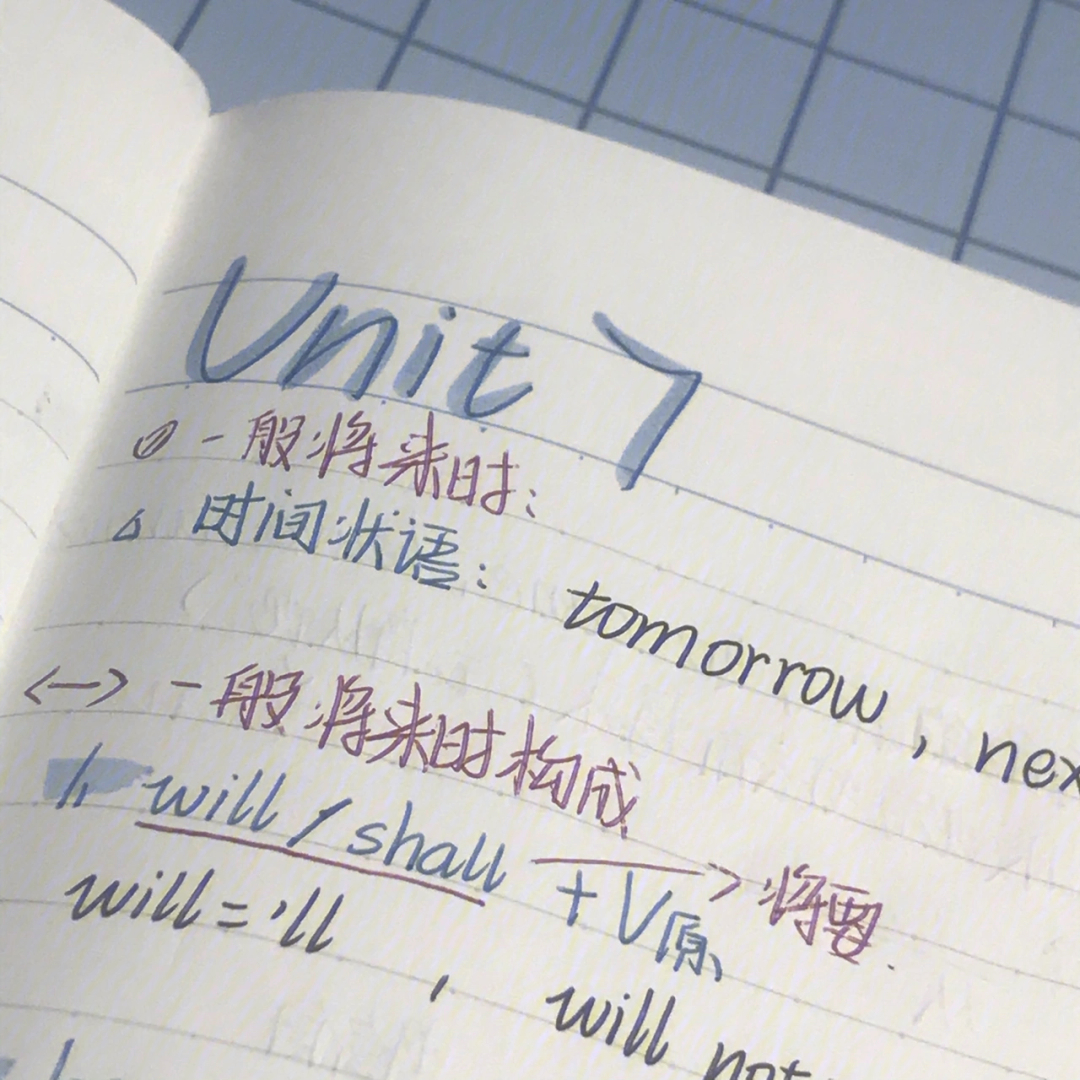 Unit 7
一般将来时:
△ 时间状语: tomorrow, nex
<一> 一般将来时构成
1. will / shall + V原、 → 将要.
will = 'll , will not